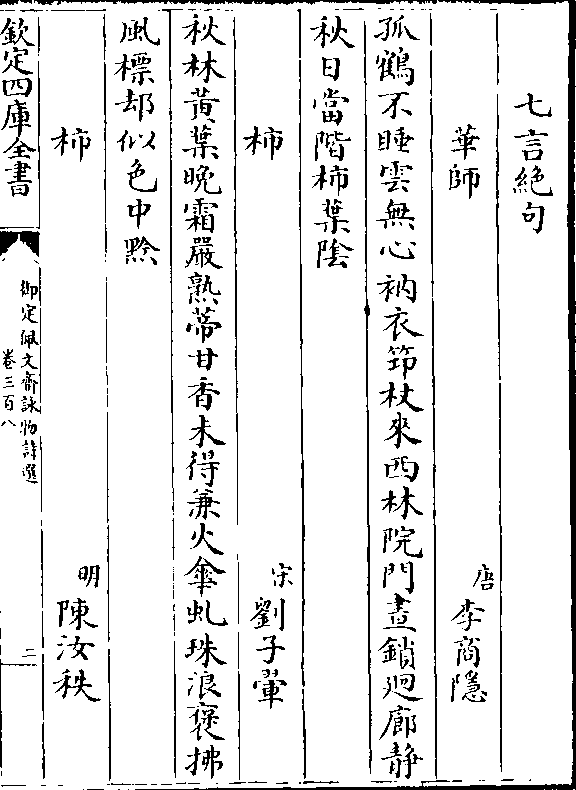 七言絶句
華師
唐 李商隱
孤鶴不睡雲無心衲衣筇杖來西林院門晝鎖廻廊静
秋日當階柿葉陰
柿
宋 劉子翬
秋林黃葉晚霜嚴熟蒂甘香未得兼火傘虬珠浪褒拂
風標却似色中黔
柿
明 陳汝秩
欽定四庫全書
御定佩文齋詠物詩選
卷三百八
二